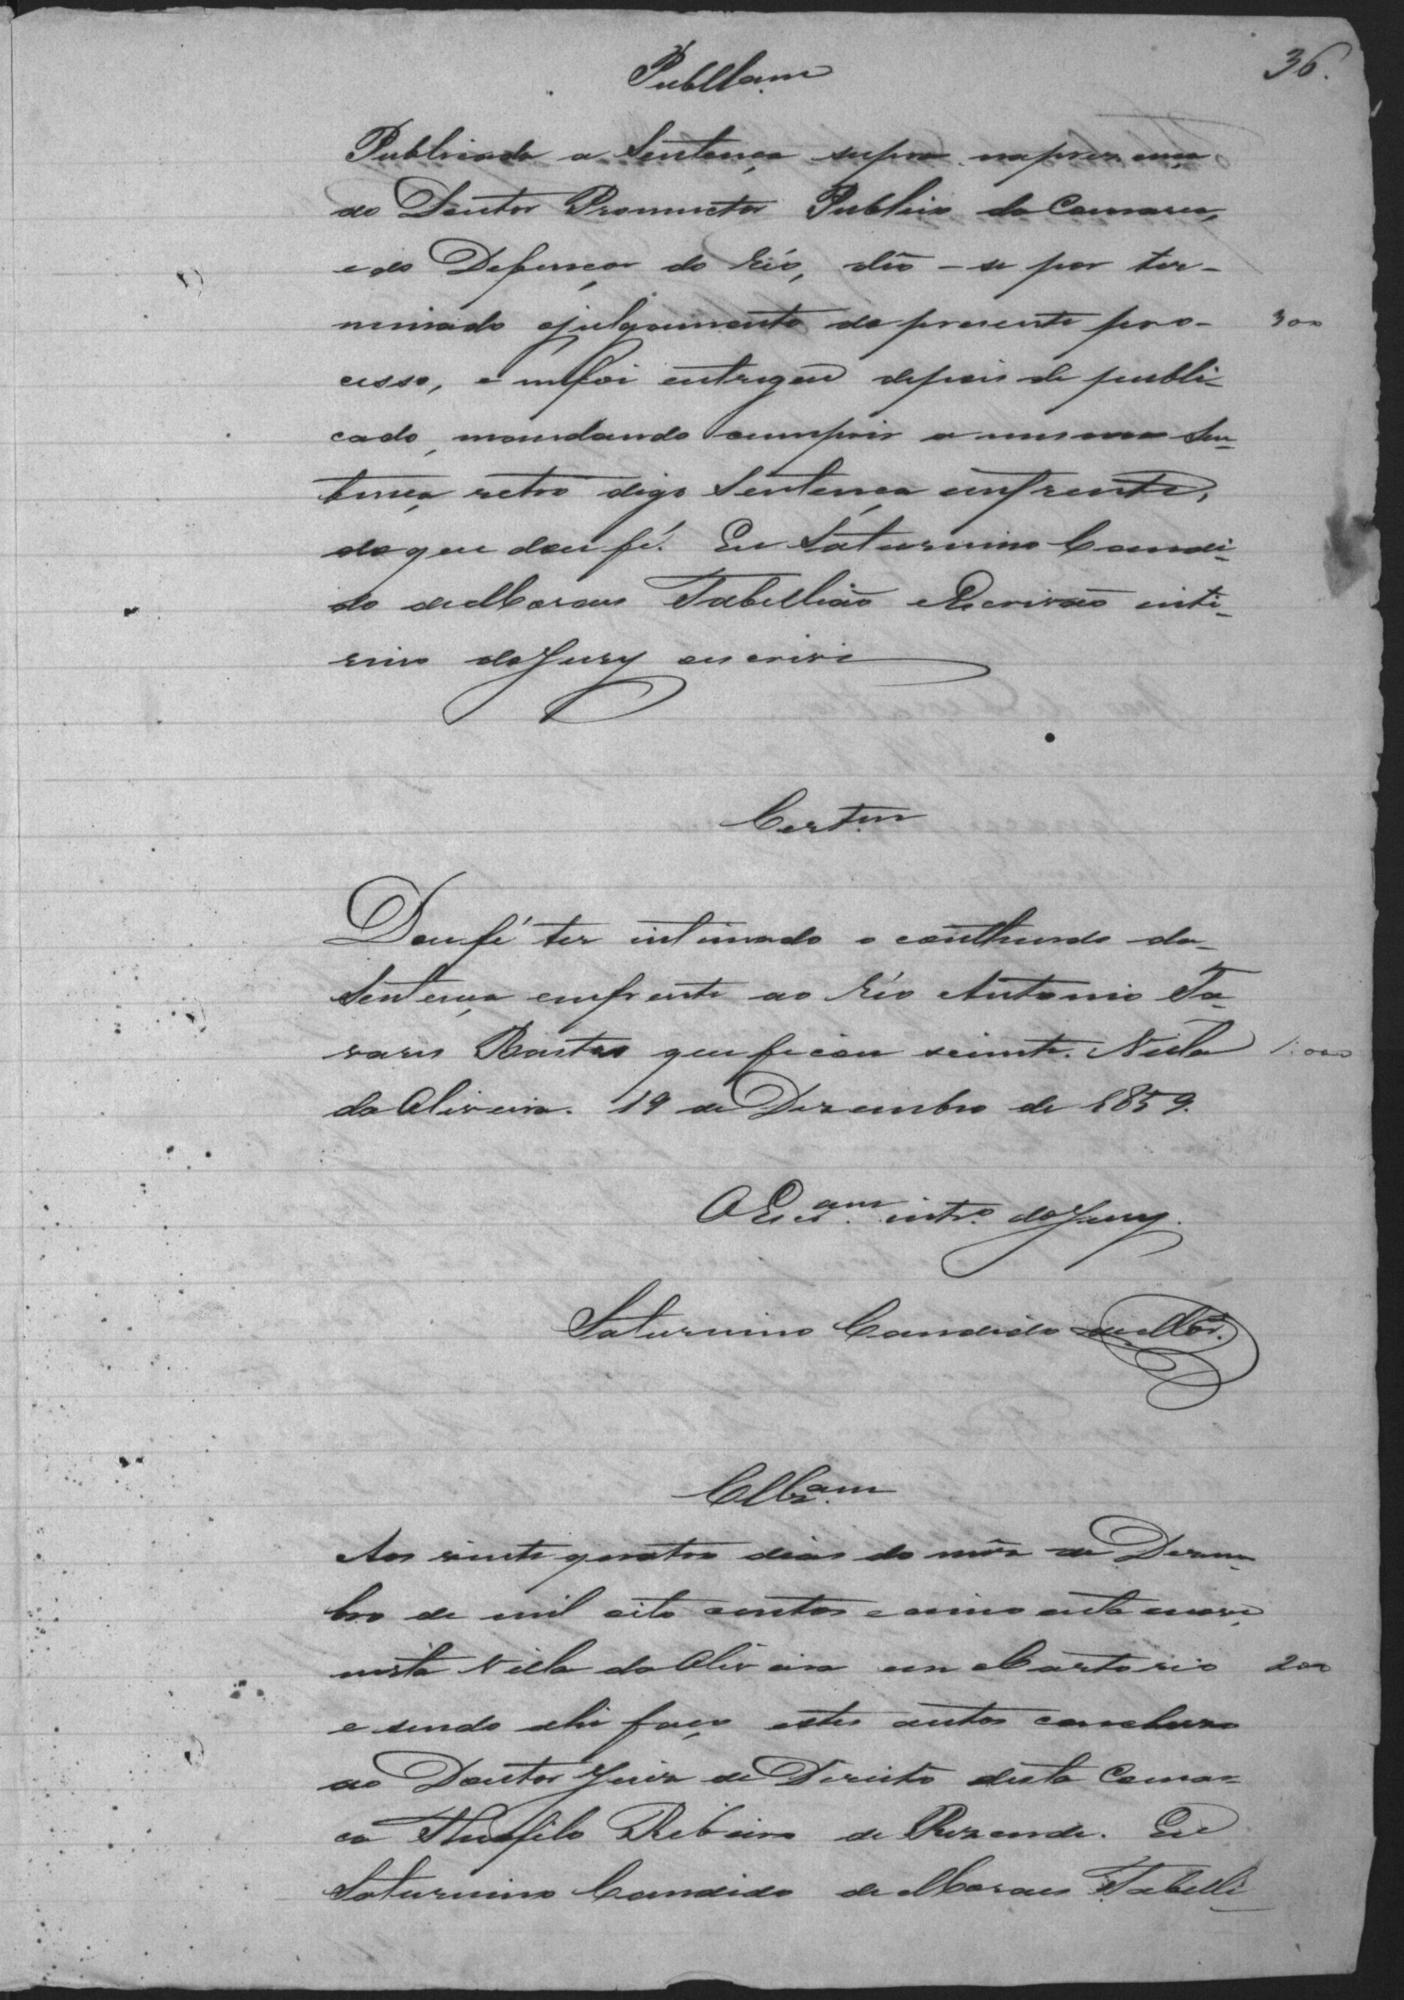 36.
Publlam
Publicada a Sentença supra na prezença
do Doutor Promuctor Publico da Comarca,
e do Defençor do Réo, dêo-se por ter-
minado o julgamento do presente pro- 300
cesso, e me foi entregue depois de publi-
cado, mandando cumprir a mesma Sen-
tença retro digo Sentença emfrente,
do que dou fé. Eu Saturnino Candi-
do de Moraes Tabellião e Escrivão inti-
rino do Jury escrivi
Certm
Dou fé ter intimado o conthendo da
Sentença emfrente ao Réo Antonio Ta-
vares Bastos que ficou sciente. Villa 1:000
da Oliveira. 19 de Dezembro de 1859.
O Escram intro do Jury.
Saturnino Candido de Mor.
Cllzam
Aos vinte quatro dias do mês de Dezem-
bro de mil oito centos e cincoenta e nove
nesta Villa da Oliveira em Cartorio 200
e sendo ahi faço estes autos concluzos
ao Doutor Juiz de Direito desta Comar-
ca Theofilo Ribeiro de Rezende. Eu
Saturnino Candido de Moraes Tabelli-